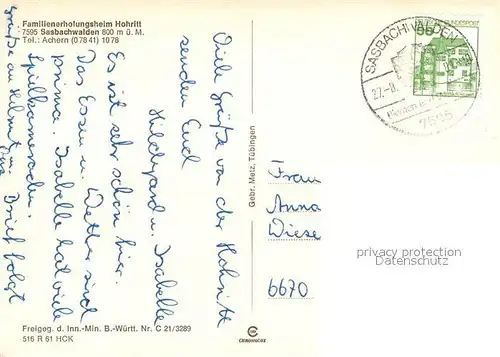 Familienerholungsheim Hohritt
7595 Sasbachwalden 800 m ü. M.
Tel.: Achern (0 78 41) 10 78
Viele Grüße von der Hohritt
senden Euch
Hildegard u. Isabelle
Es ist sehr schön hier.
Das Essen u. Wetter sind
prima. Isabelle hat viele
Spielkameraden.
Grüße an Helmut u.
Brief folgt
Gebr. Metz, Tübingen
SASBACHWALDEN
27.-8.
7595
50
BUNDESPOST
Frau
Anna
Wiese
6670
privacy protection
Datenschutz
Freigeg. d. Inn.-Min. B.-Württ. Nr. C 21/3289
516 R 61 HCK
CHROMOLUX